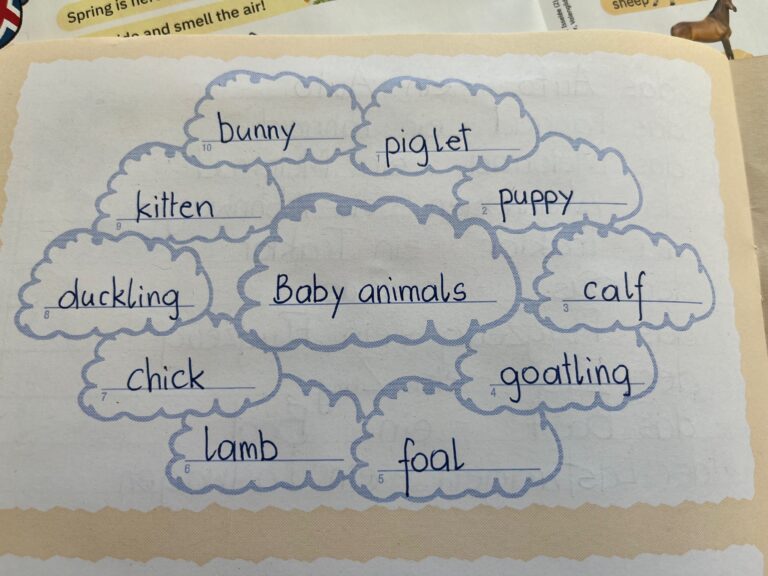 Spring is here
and smell the air!
sheep
Baby animals
1 piglet
2 puppy
3 calf
4 goatling
5 foal
6 lamb
7 chick
8 duckling
9 kitten
10 bunny